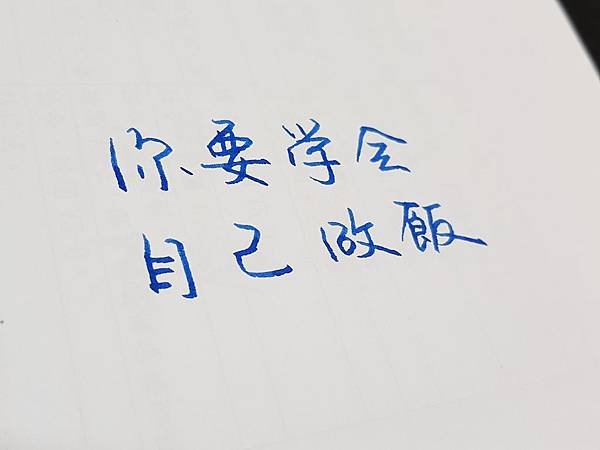 你要学会
自己做飯